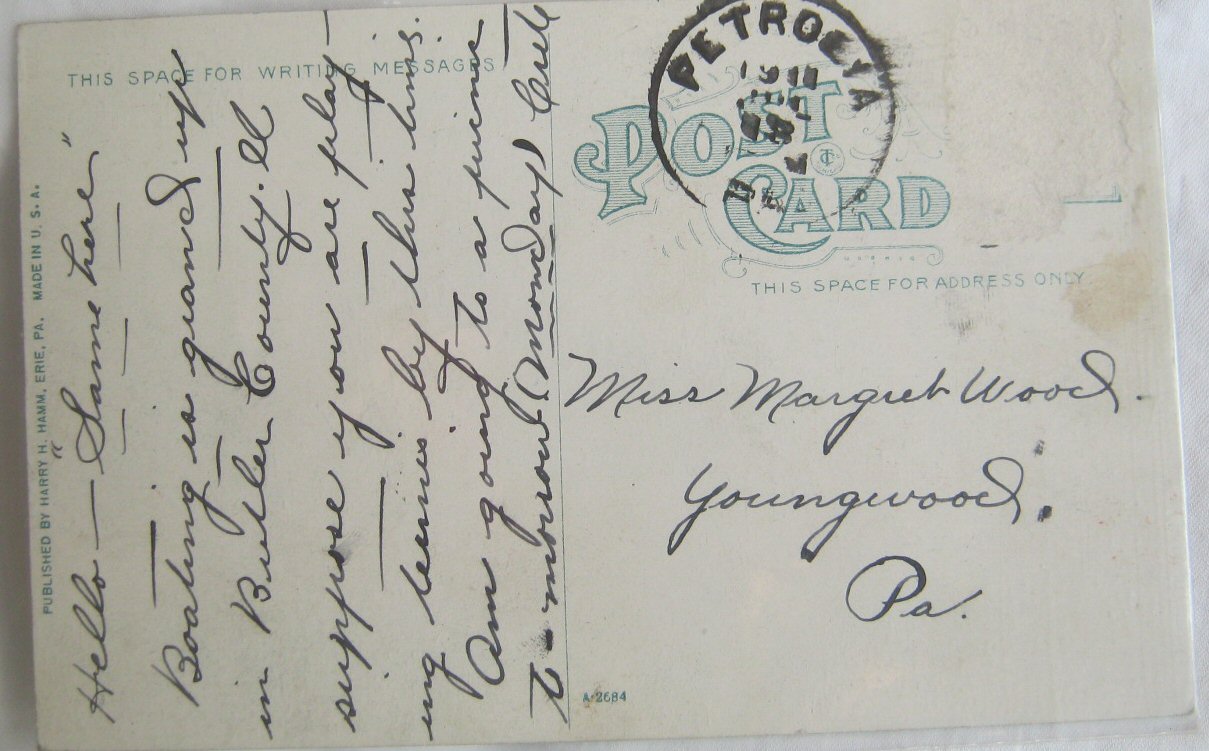 PUBLISHED BY HARRY H. HAMM, ERIE, PA. MADE IN U. S. A.
THIS SPACE FOR WRITING MESSAGES
Hello — "Same here"
Boating is grand up
in Butler County. I
suppose you are play-
ing tennis by this time.
Am going to a picnic
to-morrow (Monday)
PETROLIA
1911
POST CARD
THIS SPACE FOR ADDRESS ONLY
Miss Margret Wood.
Youngwood,
Pa.
A-2684